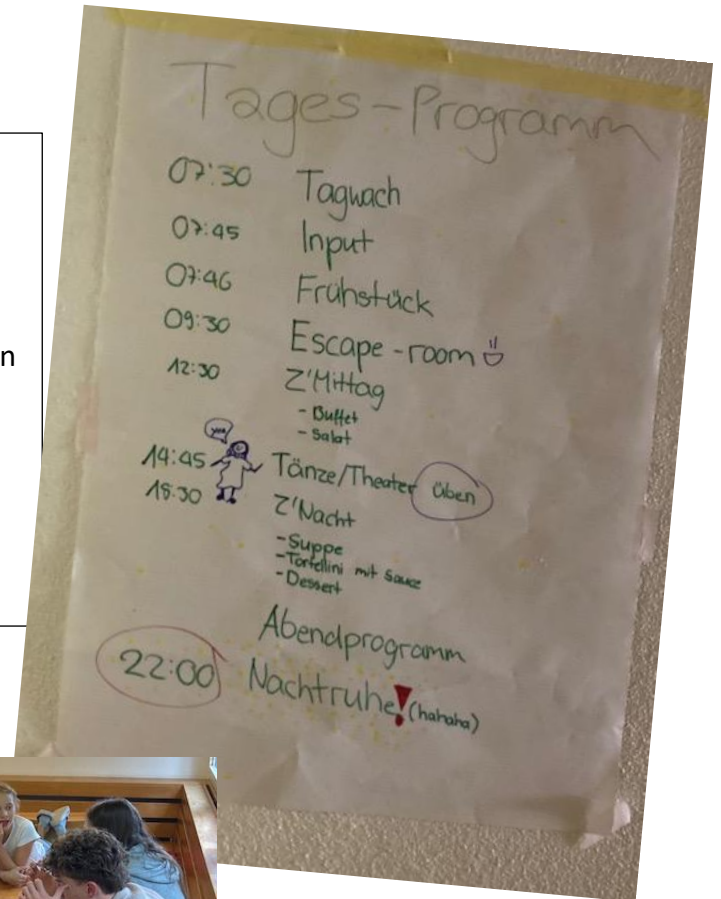 Tages-Programm
07:30 Tagwach
07:45 Input
07:46 Frühstück
09:30 Escape-room
12:30 Z'Mittag
- Buffet
- Salat
yea
14:45 Tänze/Theater üben
18:30 Z'Nacht
- Suppe
- Tortellini mit Sauce
- Dessert
Abendprogramm
22:00 Nachtruhe! (hahaha)
n